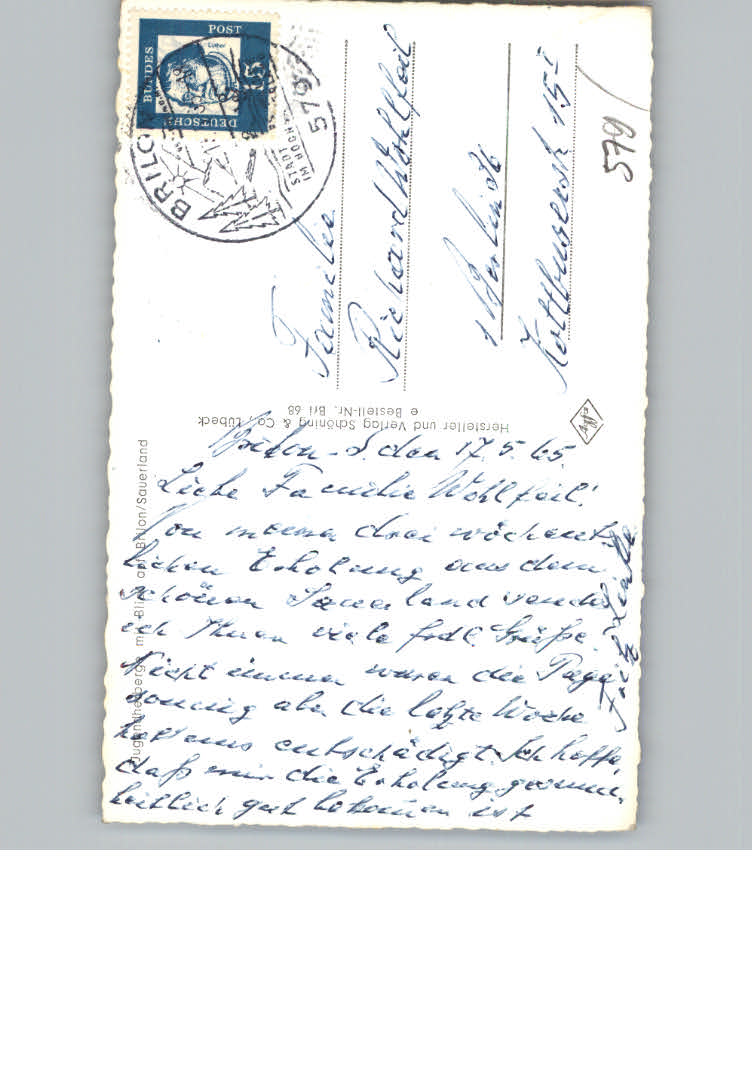 DEUTSCHE BUNDESPOST
Luther
15
579 BRILON
STADT
IM HOCH
579
Familie
Richard Wohlfeil
1 Berlin 36
Kottbuserstr 15 I
Hersteller und Verlag Schöning & Co., Lübeck
e Bestell-Nr. Bri 68
Jugendherberge mit Blick auf Brilon/Sauerland
Brilon - d. den 17.5.65
Liebe Familie Wohlfeil!
Von meiner drei wöchent-
lichen Erholung aus dem
schönen Sauerland sendet
ich Ihnen viele frdl. Grüße.
Nicht immer waren die Tage
sonnig aber die letzte Woche
hat uns entschädigt. Ich hoffe,
daß mir die Erholung gesund-
heitlich gut bekommen ist